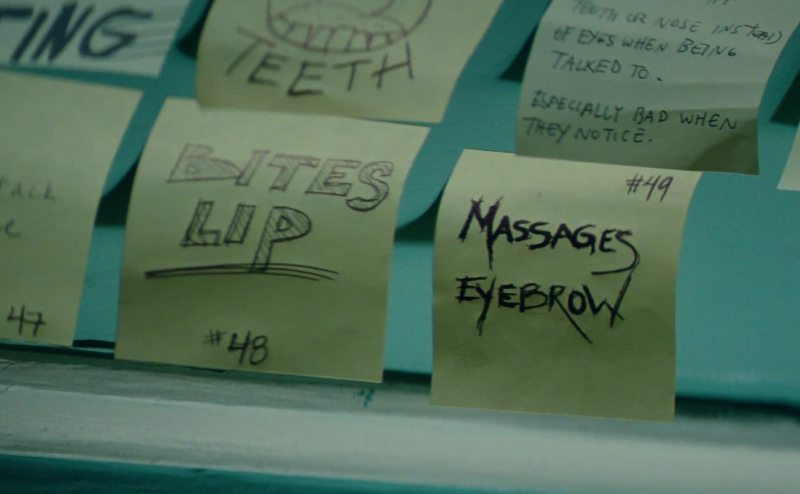 TING
TEETH
TEETH OR NOSE INSTEAD
OF EYES WHEN BEING
TALKED TO.
ESPECIALLY BAD WHEN
THEY NOTICE.
47
BITES
LIP
#48
#49
MASSAGES
EYEBROW